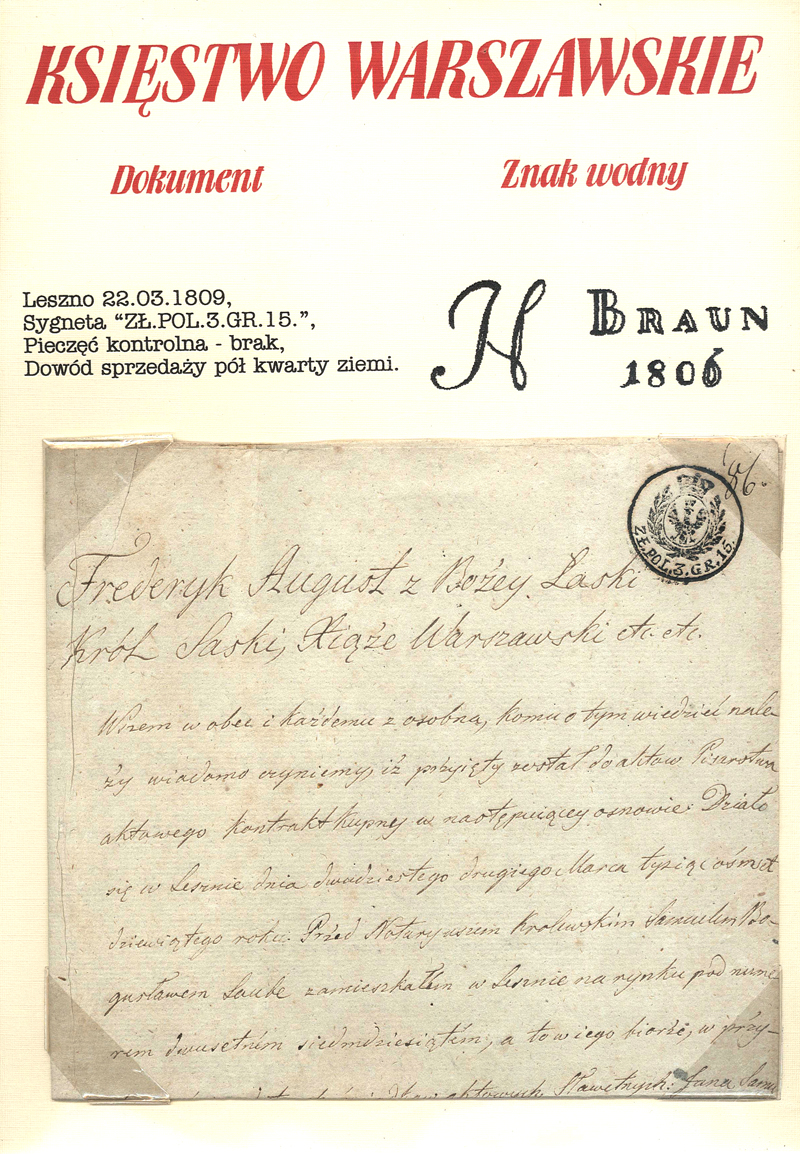 KSIĘSTWO WARSZAWSKIE
Dokument
Znak wodny
Leszno 22.03.1809,
Sygneta “ZŁ.POL.3.GR.15.”,
Pieczęć kontrolna - brak,
Dowód sprzedaży pół kwarty ziemi.
H
BRAUN
1806
86.
ZŁ.POL.3.GR.15.
Frederyk August z Bożey Łaski
Król Saski, Xiąże Warszawski etc. etc.
Wszem w obec i każdemu z osobna, komu o tym wiedzieć nale-
ży wiadomo czyniemy, iż przyięty został do aktow Pisarstwa
aktowego kontrakt kupny w następuiącey osnowie: Działo
się w Lesznie dnia dwudziestego drugiego Marca tysiąc ośmset
dziewiątego roku. Przed Notaryuszem Krolewskim Samuelem Bo-
gusławem Laube zamieszkałem w Lesznie na rynku pod nume-
rem dwusetném siedmdziesiątém, a to w iego biorze, w przy-
aktowych. Sławetnych: Jana Samu